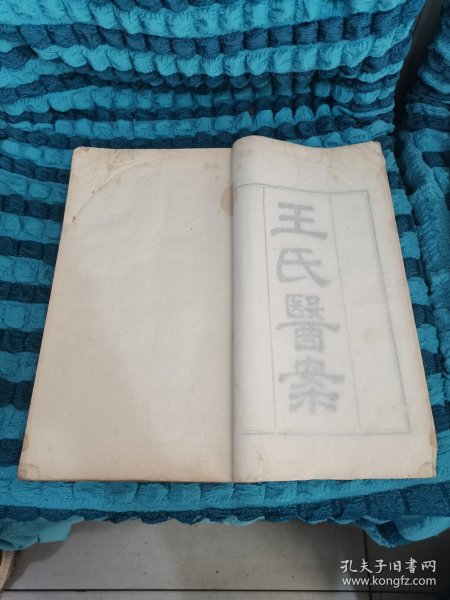 王氏醫案
孔夫子旧书网
www.kongfz.com